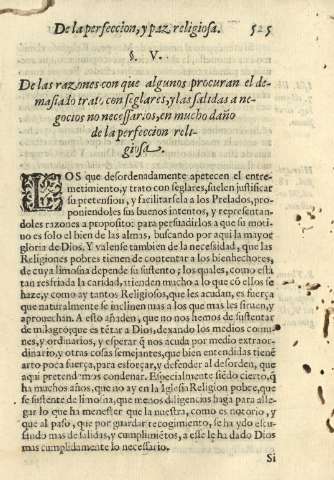 De la perfeccion, y paz religiosa. 525
§. V.
De las razones con que algunos procuran el de-
masiado trato con seglares, y las salidas a ne-
gocios no necessarios, en mucho daño
de la perfeccion reli-
giosa.
LOS que desordenadamente apetecen el entre-
metimiento, y trato con seglares, suelen justificar
su pretension, y facilitarsela a los Prelados, pro-
poniendoles sus buenos intentos, y representan-
doles razones a proposito: para persuadirlos a que su moti-
uo es solo el bien de las almas, buscando por aqui la mayor
gloria de Dios. Y valense tambien de la necessidad, que las
Religiones pobres tienen de contentar a los bienhechores,
de cuya limosna depende su sustento; los quales, como està
tan resfriada la caridad, atienden mucho a lo que cō ellos se
haze, y como ay tantos Religiosos, que les acudan, es fuerça
que naturalmente se inclinen mas a los que mas les siruen, y
aprouechan. A esto añaden, que no nos hemos de sustentar
de milagro; que es tētar a Dios, dexando los medios comu-
nes, y ordinarios, y esperar q̄ nos acuda por medio extraor-
dinario, y otras cosas semejantes, que bien entendidas tiene̅
arto poca fuerça, para esforçar, y defender al desorden, que
aqui pretendemos condenar. Especialmente siēdo cierto, q̄
ha muchos años, que no ay en la Iglesia Religion pobre, que
se sustente de limosna, que menos diligencias haga para alle-
gar lo que ha menester que la nuestra, como es notorio, y
que al paso, que por guardar recogimiento, se ha ydo escu-
sando mas de salidas, y cumplimiētos, a esse le ha dado Dios
mas cumplidamente lo necessario.
Si